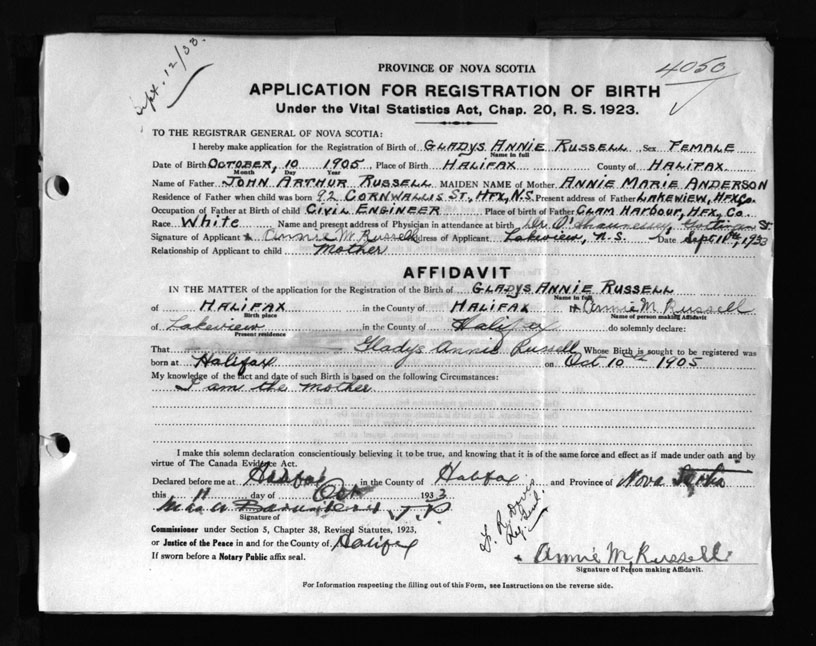 Sept. 12/33.
4050
PROVINCE OF NOVA SCOTIA
APPLICATION FOR REGISTRATION OF BIRTH
Under the Vital Statistics Act, Chap. 20, R. S. 1923.
TO THE REGISTRAR GENERAL OF NOVA SCOTIA:
I hereby make application for the Registration of Birth of GLADYS ANNIE RUSSELL, Sex FEMALE
Name in full
Date of Birth OCTOBER, 10 1905, Place of Birth HALIFAX County of HALIFAX.
Month Day Year
Name of Father JOHN ARTHUR RUSSELL MAIDEN NAME of Mother ANNIE MARIE ANDERSON
Residence of Father when child was born 92 CORNWALLIS ST., HFX, N.S. Present address of Father LAKEVIEW, HFX Co.
Occupation of Father at Birth of child CIVIL ENGINEER Place of birth of Father CLAM HARBOUR, HFX, Co.
Race White Name and present address of Physician in attendance at birth Dr. O'Shaunessy, Gottingen St.
Signature of Applicant x Annie M. Russell Address of Applicant Lakeview, N.S. Date Sept 11th, 1933
Relationship of Applicant to child Mother
AFFIDAVIT
IN THE MATTER of the application for the Registration of the Birth of GLADYS ANNIE RUSSELL
Name in full
of HALIFAX in the County of HALIFAX x Annie M Russell
Birth place Name of person making Affidavit
of Lakeview in the County of Halifax do solemnly declare:
Present residence
That Gladys Annie Russell Whose Birth is sought to be registered was
born at Halifax on Oct 10th 1905
My knowledge of the fact and date of such Birth is based on the following Circumstances:
I am the mother
I make this solemn declaration conscientiously believing it to be true, and knowing that it is of the same force and effect as if made under oath and by
virtue of The Canada Evidence Act.
Declared before me at Halifax in the County of Halifax and Province of Nova Scotia
this 11 day of Oct 1933
J. P.
Signature of
Commissioner under Section 5, Chapter 38, Revised Statutes, 1923,
or Justice of the Peace in and for the County of Halifax
If sworn before a Notary Public affix seal.
x Annie M. Russell
Signature of Person making Affidavit.
For Information respecting the filling out of this Form, see Instructions on the reverse side.